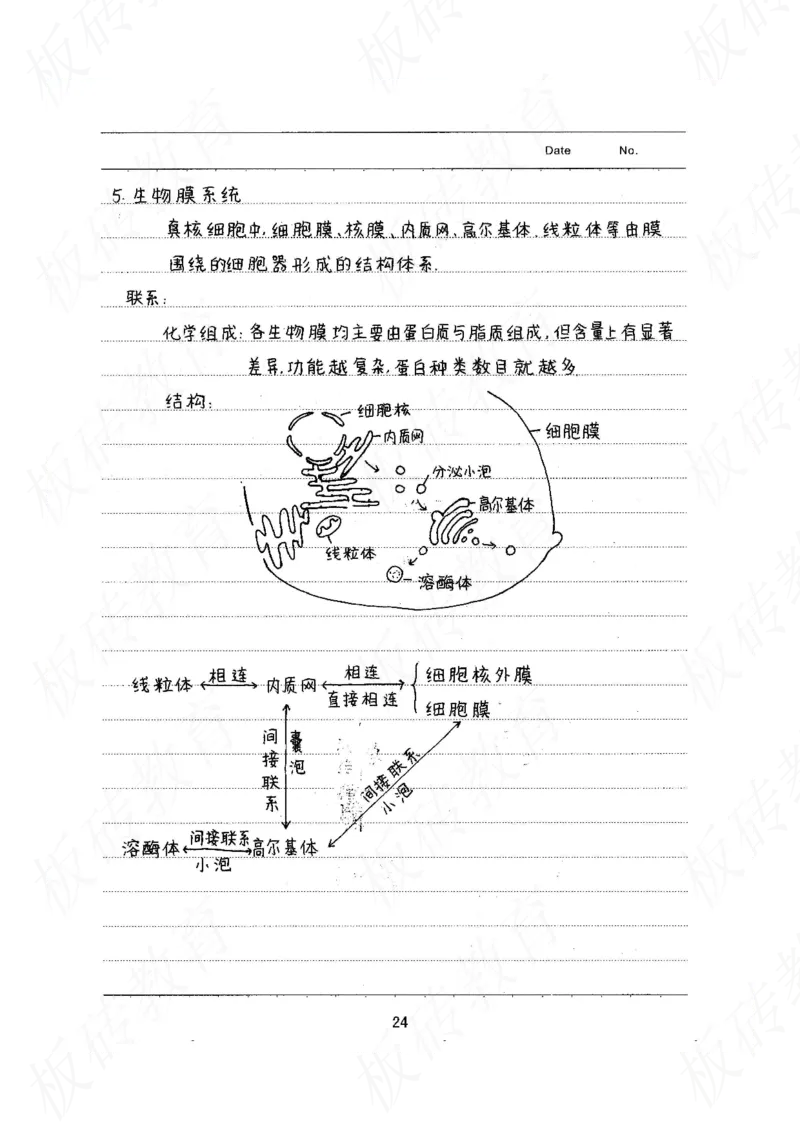 Date No.
5. 生物膜系统
真核细胞中,细胞膜、核膜、内质网、高尔基体、线粒体等由膜
围绕的细胞器形成的结构体系.
联系:
化学组成:各生物膜均主要由蛋白质与脂质组成,但含量上有显著
差异,功能越复杂,蛋白种类数目就越多
结构:
细胞核
内质网
细胞膜
分泌小泡
高尔基体
线粒体
溶酶体
线粒体 相连 内质网 相连 直接相连 细胞核外膜
细胞膜
间接联系 囊泡
间接联系 小泡
溶酶体 间接联系 小泡 高尔基体
24
板砖教育